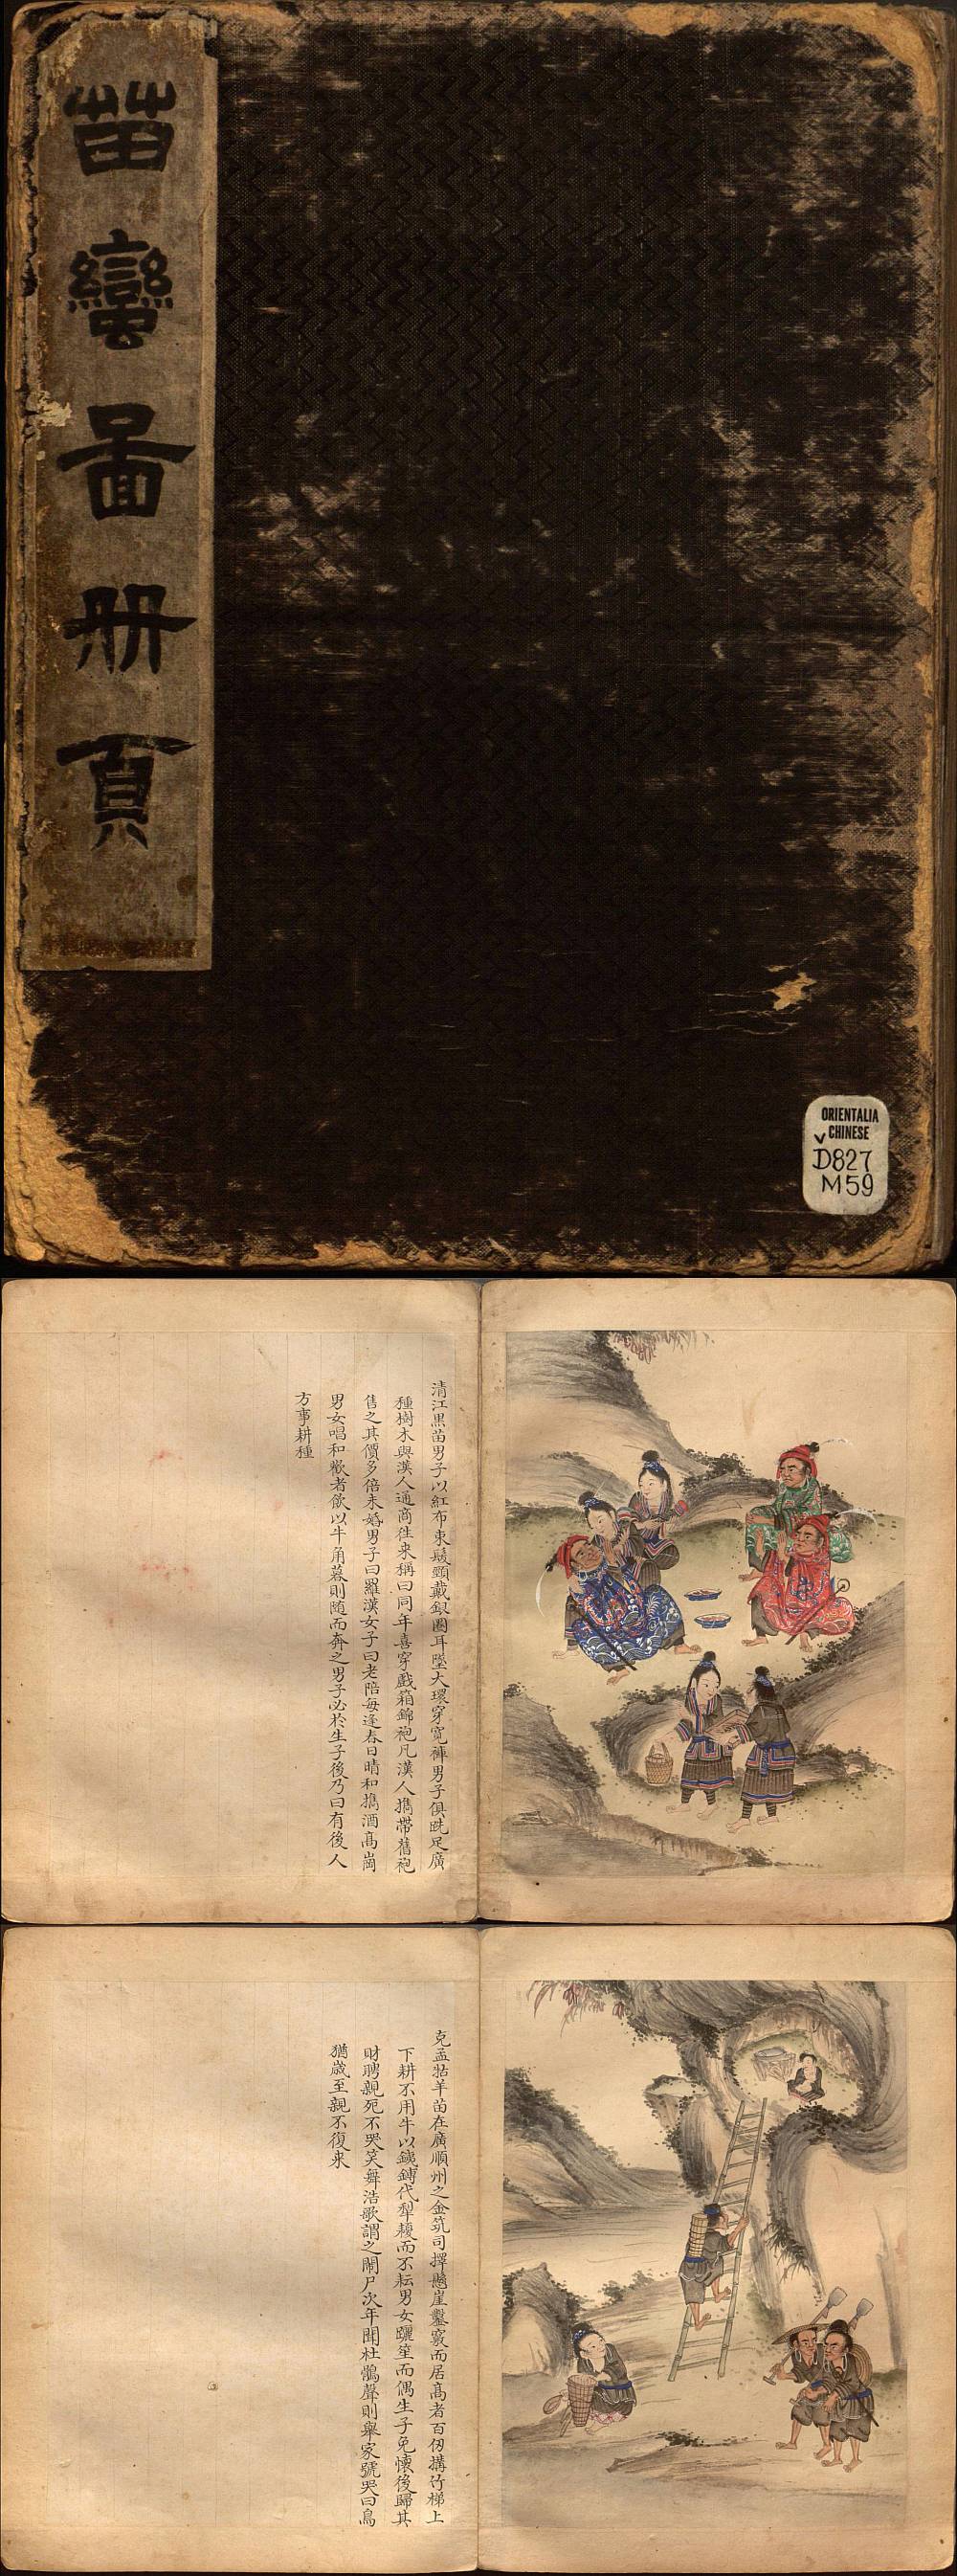 苗蠻圖册頁
ORIENTALIA
CHINESE
V
D827
M59
清江黑苗男子以紅布束髮頸戴銀圈耳墜大環穿寬褲男子俱跣足廣
種樹木與漢人通商往来稱曰同年喜穿戲箱錦袍凡漢人携帶舊袍
售之其價多倍未婚男子曰羅漢女子曰老陪每逢春日晴和携酒髙崗
男女唱和歡者飲以牛角暮則随而奔之男子必於生子後乃曰有後人
方事耕種
克孟牯羊苗在廣順州之金筑司擇懸崖鑿竅而居髙者百仞搆竹梯上
下耕不用牛以錢鎛代犁耰而不耘男女躧笙而偶生子免懷後歸其
財聘親死不哭笑舞浩歌謂之鬧尸次年聞杜鵑聲則舉家號哭曰鳥
猶歲至親不復来